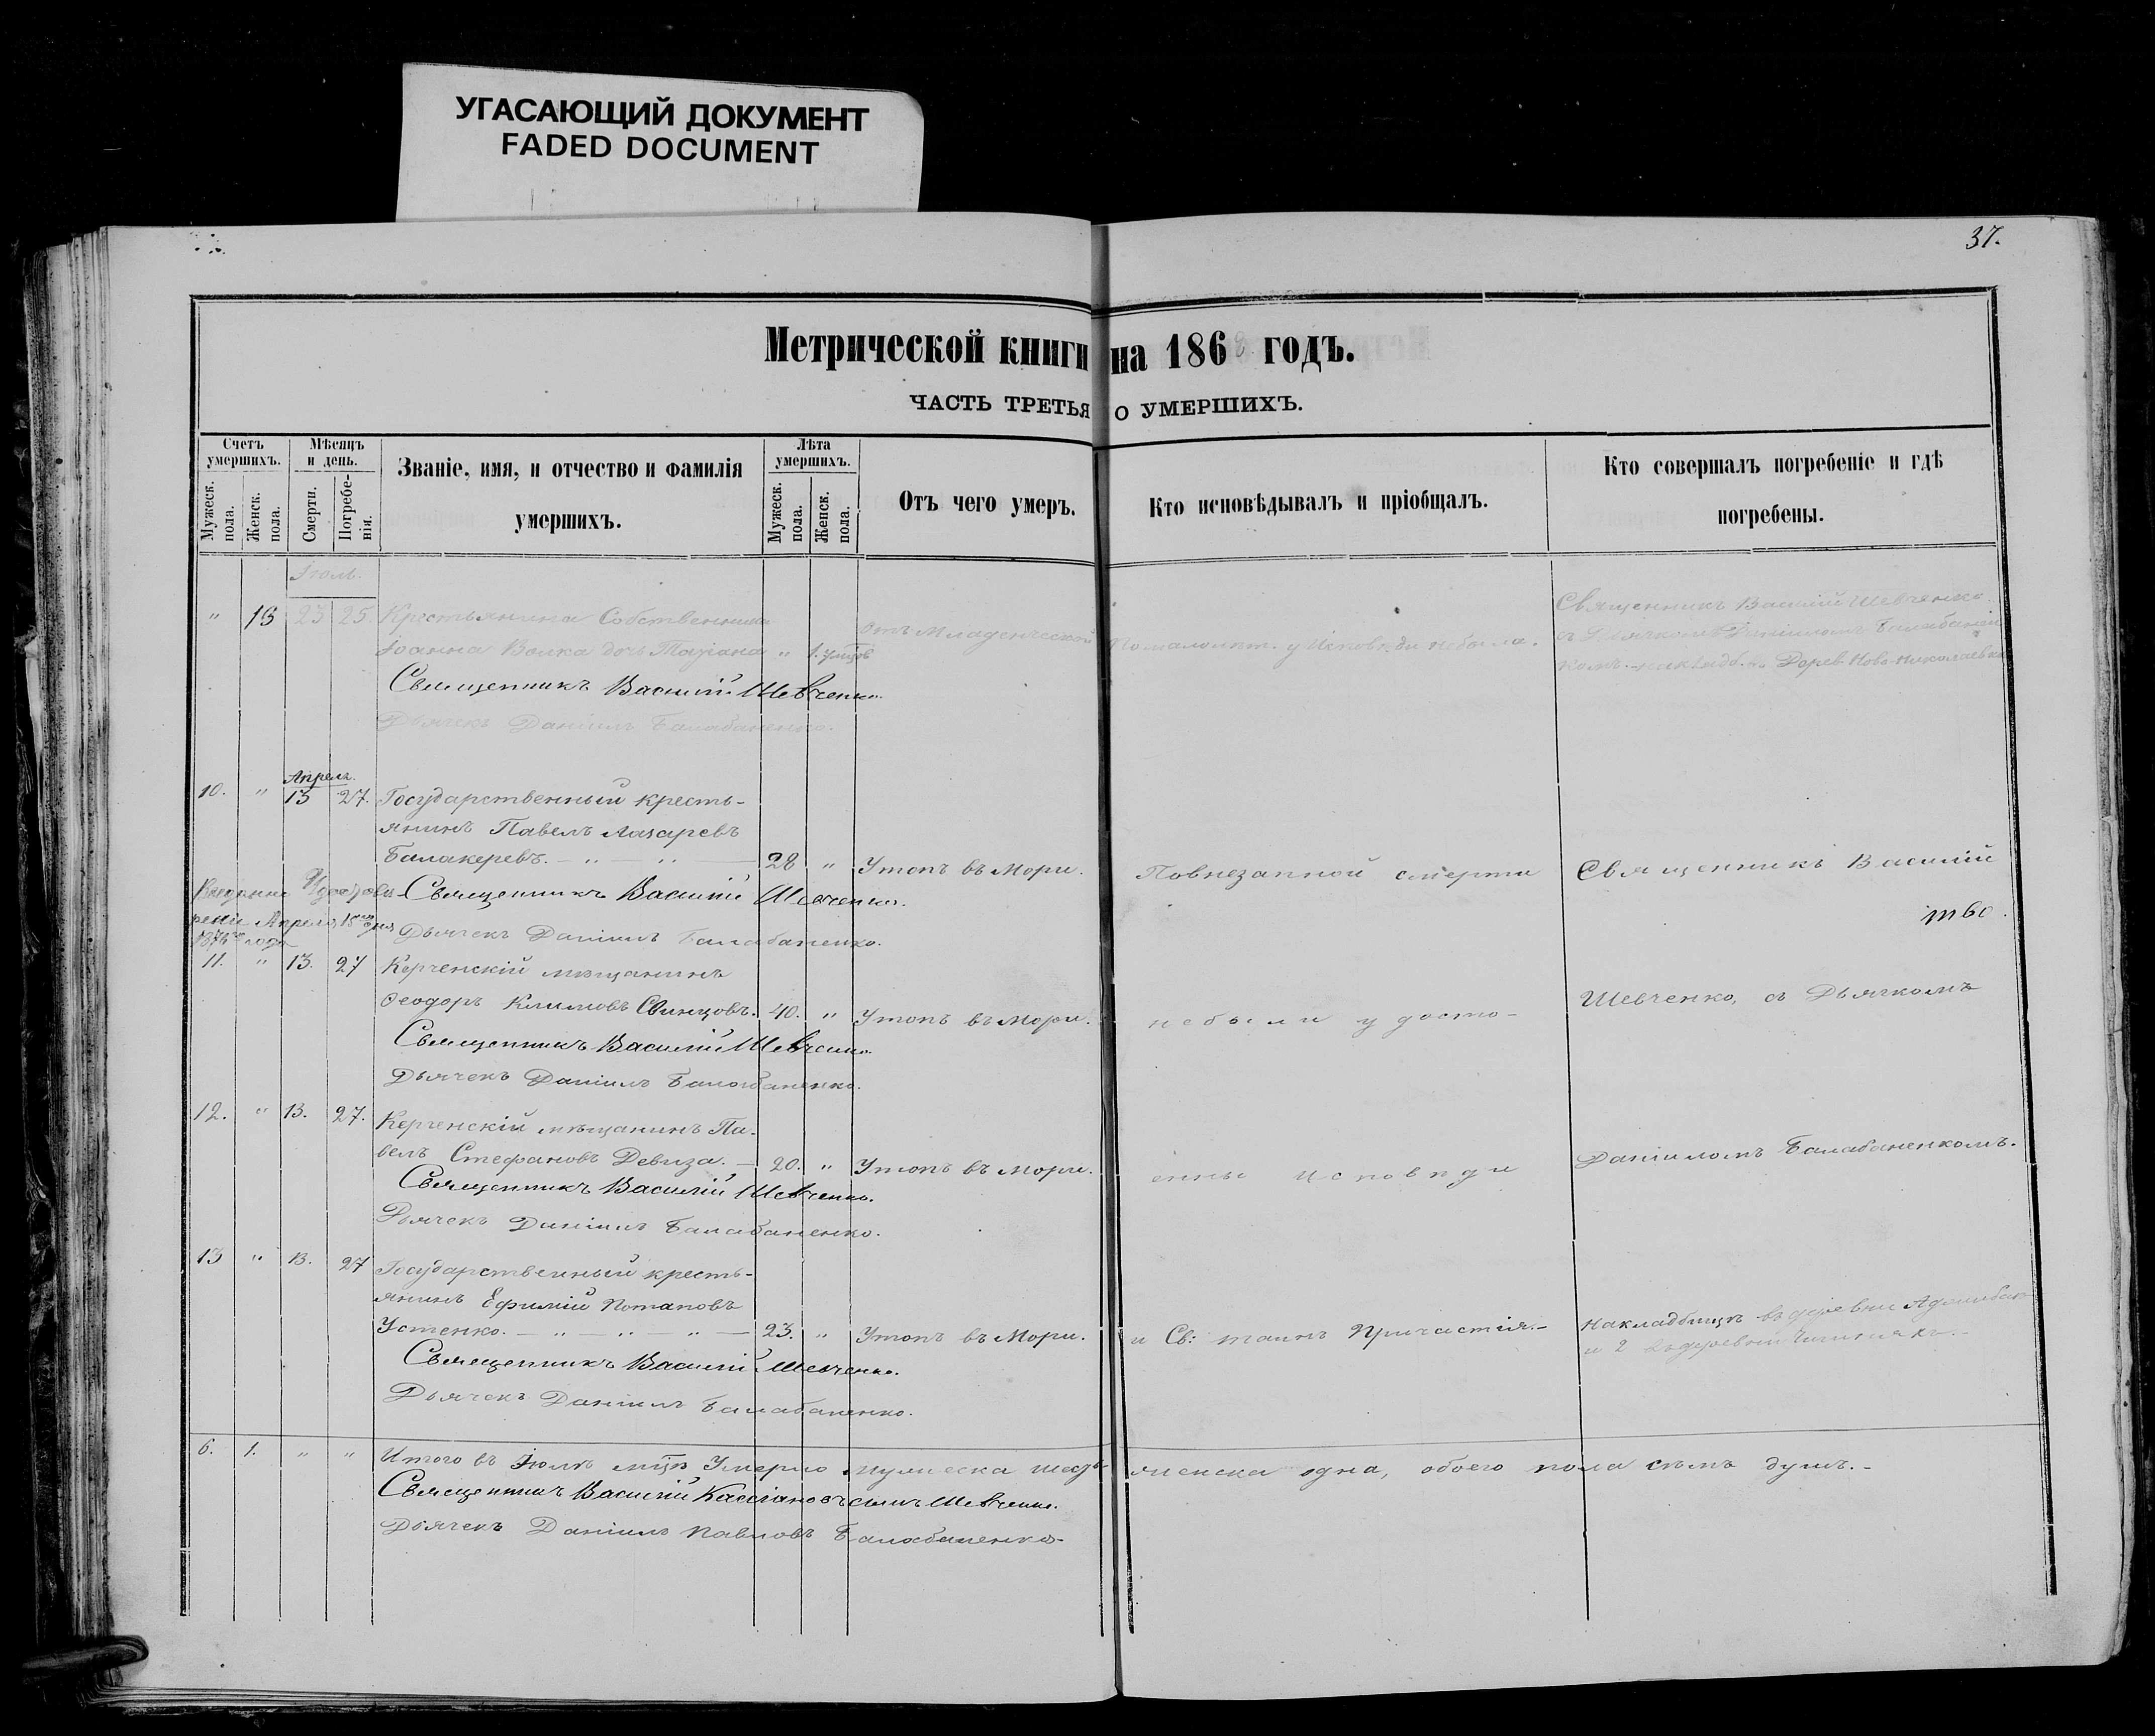 УГАСАЮЩИЙ ДОКУМЕНТ
FADED DOCUMENT
37.
Метрической книги на 186 годъ.
ЧАСТЬ ТРЕТЬЯ О УМЕРШИХЪ.
Счетъ умершихъ.
Мужеск. пола.
Женск. пола.
Мѣсяцъ и день.
Смерти.
Погребенія.
Званіе, имя, и отчество и фамилія
умершихъ.
Лѣта умершихъ.
Мужеск. пола.
Женск. пола.
Отъ чего умеръ.
Кто исповѣдывалъ и пріобщалъ.
Кто совершалъ погребеніе и гдѣ
погребены.
Іюль.
" 13 23 25 Крестьянина Собственника
Іоанна Волка дочь Татіана " 1.
Отъ младенческой
Священникъ Василій Шевченко
съ Дьячкомъ Даніиломъ Балабанен
комъ. Дерев. Ново-Николаевка
Священникъ Василій Шевченко.
Дьячекъ Даніилъ Балабаненко.
Апрель.
10. " 13 27. Государственный кресть-
янинъ Павелъ Лазаревъ
Балакеревъ. 28 " Утопъ въ Мори. Повнезапной смерти Священникъ Василій
Священникъ Василій Шевченко.
Апреля 15 дня
года
Дьячекъ Даніилъ Балабаненко.
11. " 13. 27 Керченскій мѣщанинъ
Ѳеодоръ Климовъ Свинцовъ. 40. " Утопъ въ Мори. небыли удосто- Шевченко, съ Дьячкомъ
Священникъ Василій Шевченко.
Дьячекъ Даніилъ Балабаненко.
12. " 13. 27. Керченскій мѣщанинъ Па-
велъ Стефановъ Девиза. 20. " Утопъ въ Мори. енны Исповѣди Даніиломъ Балабаненкомъ.
Священникъ Василій Шевченко.
Дьячекъ Даніилъ Балабаненко.
13 " 13. 27 Государственный кресть-
янинъ Ефимій Потаповъ
Устенко. 23. " Утопъ въ Мори. и Св: таинъ Причастія. Накладбищѣ въ деревни
и 2 въ деревни
Священникъ Василій Шевченко.
Дьячекъ Даніилъ Балабаненко.
6. 1. " " Итого въ Іюлѣ мцѣ Умерло мужеска шесть женска одна, обоего пола семь душъ.
Священникъ Василій Кассіановъ сынъ Шевченко.
Дьячекъ Даніилъ Павловъ Балабаненко